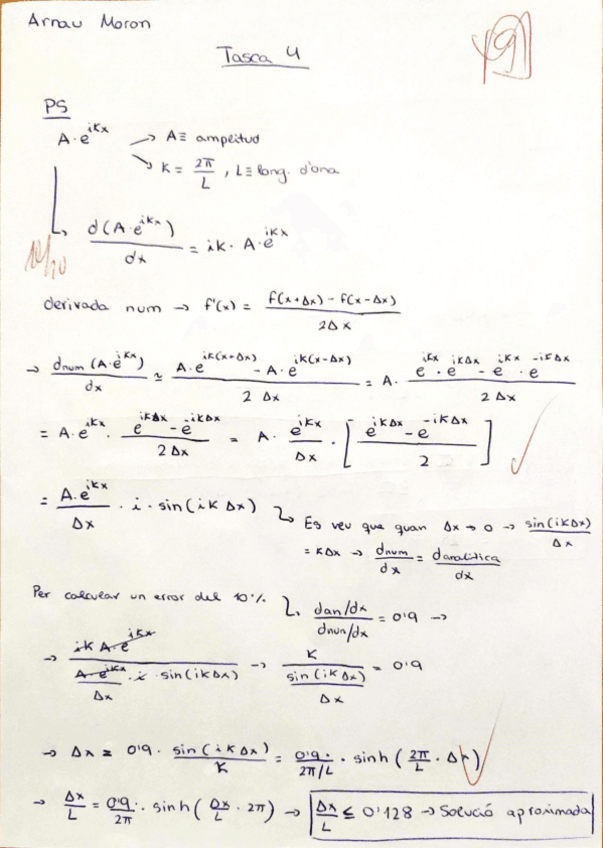 Arnau Moron
Tasca 4
P5
A·e^{iKx} → A ≡ amplitud
↘ K = 2π/L , L ≡ long. d'ona
↳ d(A·e^{iKx})/dx = iK · A·e^{iKx}
10/10
derivada num → f'(x) = (f(x+Δx) - f(x-Δx))/(2Δx)
→ dnum(A·e^{iKx})/dx ≃ (A·e^{iK(x+Δx)} - A·e^{iK(x-Δx)})/(2 Δx) = A· (e^{iKx} · e^{iKΔx} - e^{iKx} · e^{-iKΔx})/(2Δx)
= A·e^{iKx} · (e^{iKΔx} - e^{-iKΔx})/(2Δx) = A · e^{iKx}/Δx · [(e^{iKΔx} - e^{-iKΔx})/2]
= A·e^{iKx}/Δx · i · sin(iKΔx) ↳ Es veu que quan Δx → 0 → sin(iKΔx)/Δx
= KΔx → dnum/dx = danalítica/dx
Per calcular un error del 10% ↳ (dan/dx)/(dnum/dx) = 0'9 →
→ (iK A·e^{iKx})/((A·e^{iKx}/Δx) · i · sin(iKΔx)) → K/(sin(iKΔx)/Δx) = 0'9
→ Δx = 0'9 · sin(iKΔx)/K = 0'9/(2π/L) · sinh(2π/L · Δx)
→ Δx/L = 0'9/2π · sinh(Δx/L · 2π) → Δx/L ≤ 0'128 → Solució aproximada